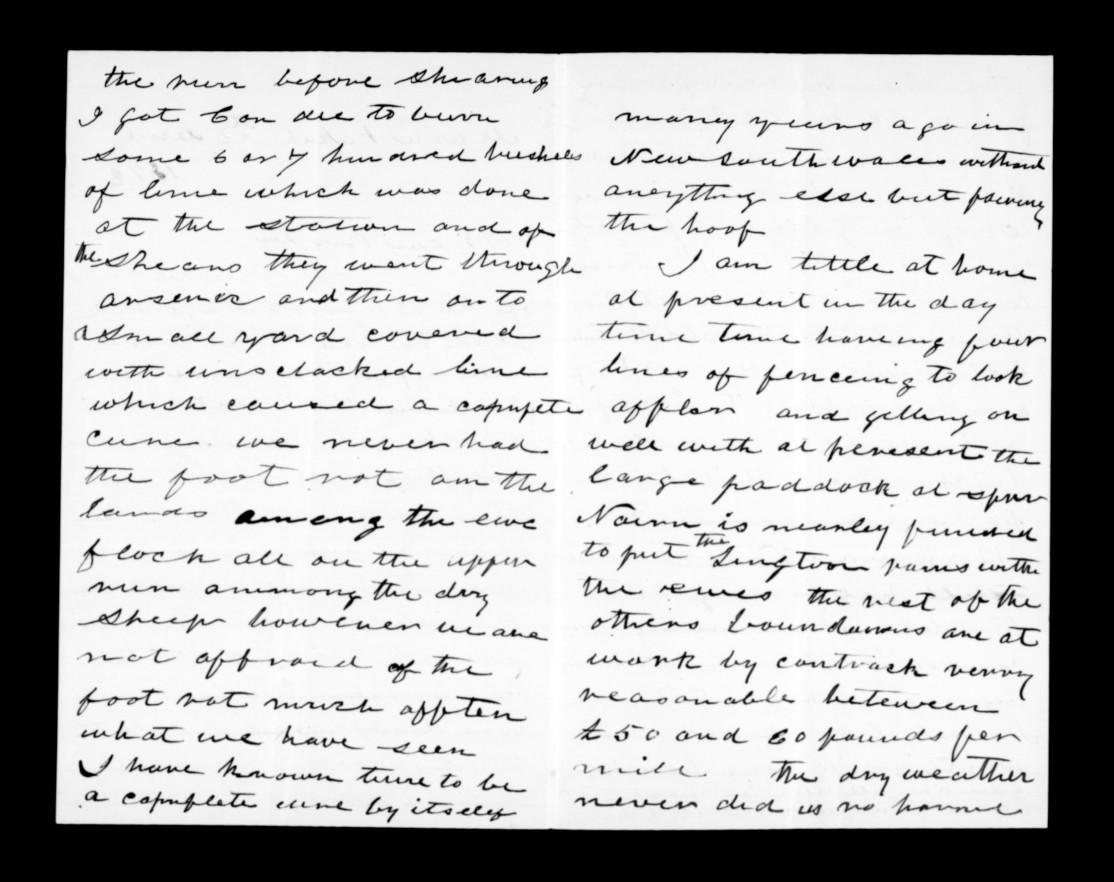 the run before shearing
I got Condee to burn
some 6 or 7 hundred bushels
of lime which was done
at the station and of
the shears they went through
arsenic and then on to
a small yard covered
with unsclacked lime
which caused a copmpete
cure we never had
the foot rot on the
lands among the ewe
flock all on the upper
run ammong the dry
sheep however we are
not affraid of the
foot rot much affter
what we have seen
I have known ture to be
a copmplete cure by itself
maney years ago in
New south wales without
aneything else but paring
the hoof
I am little at home
at present in the day
time time haveing four
lines of fenceing to look
affter and getting on
well with at peresent the
large paddock at
Nairn is nearley
to put the rams with
the ewes the rest of the
others boundarus are at
work by contrack verry
reasonable beteween
£50 and 60 pounds per
mile the dry weather
never did us no harm